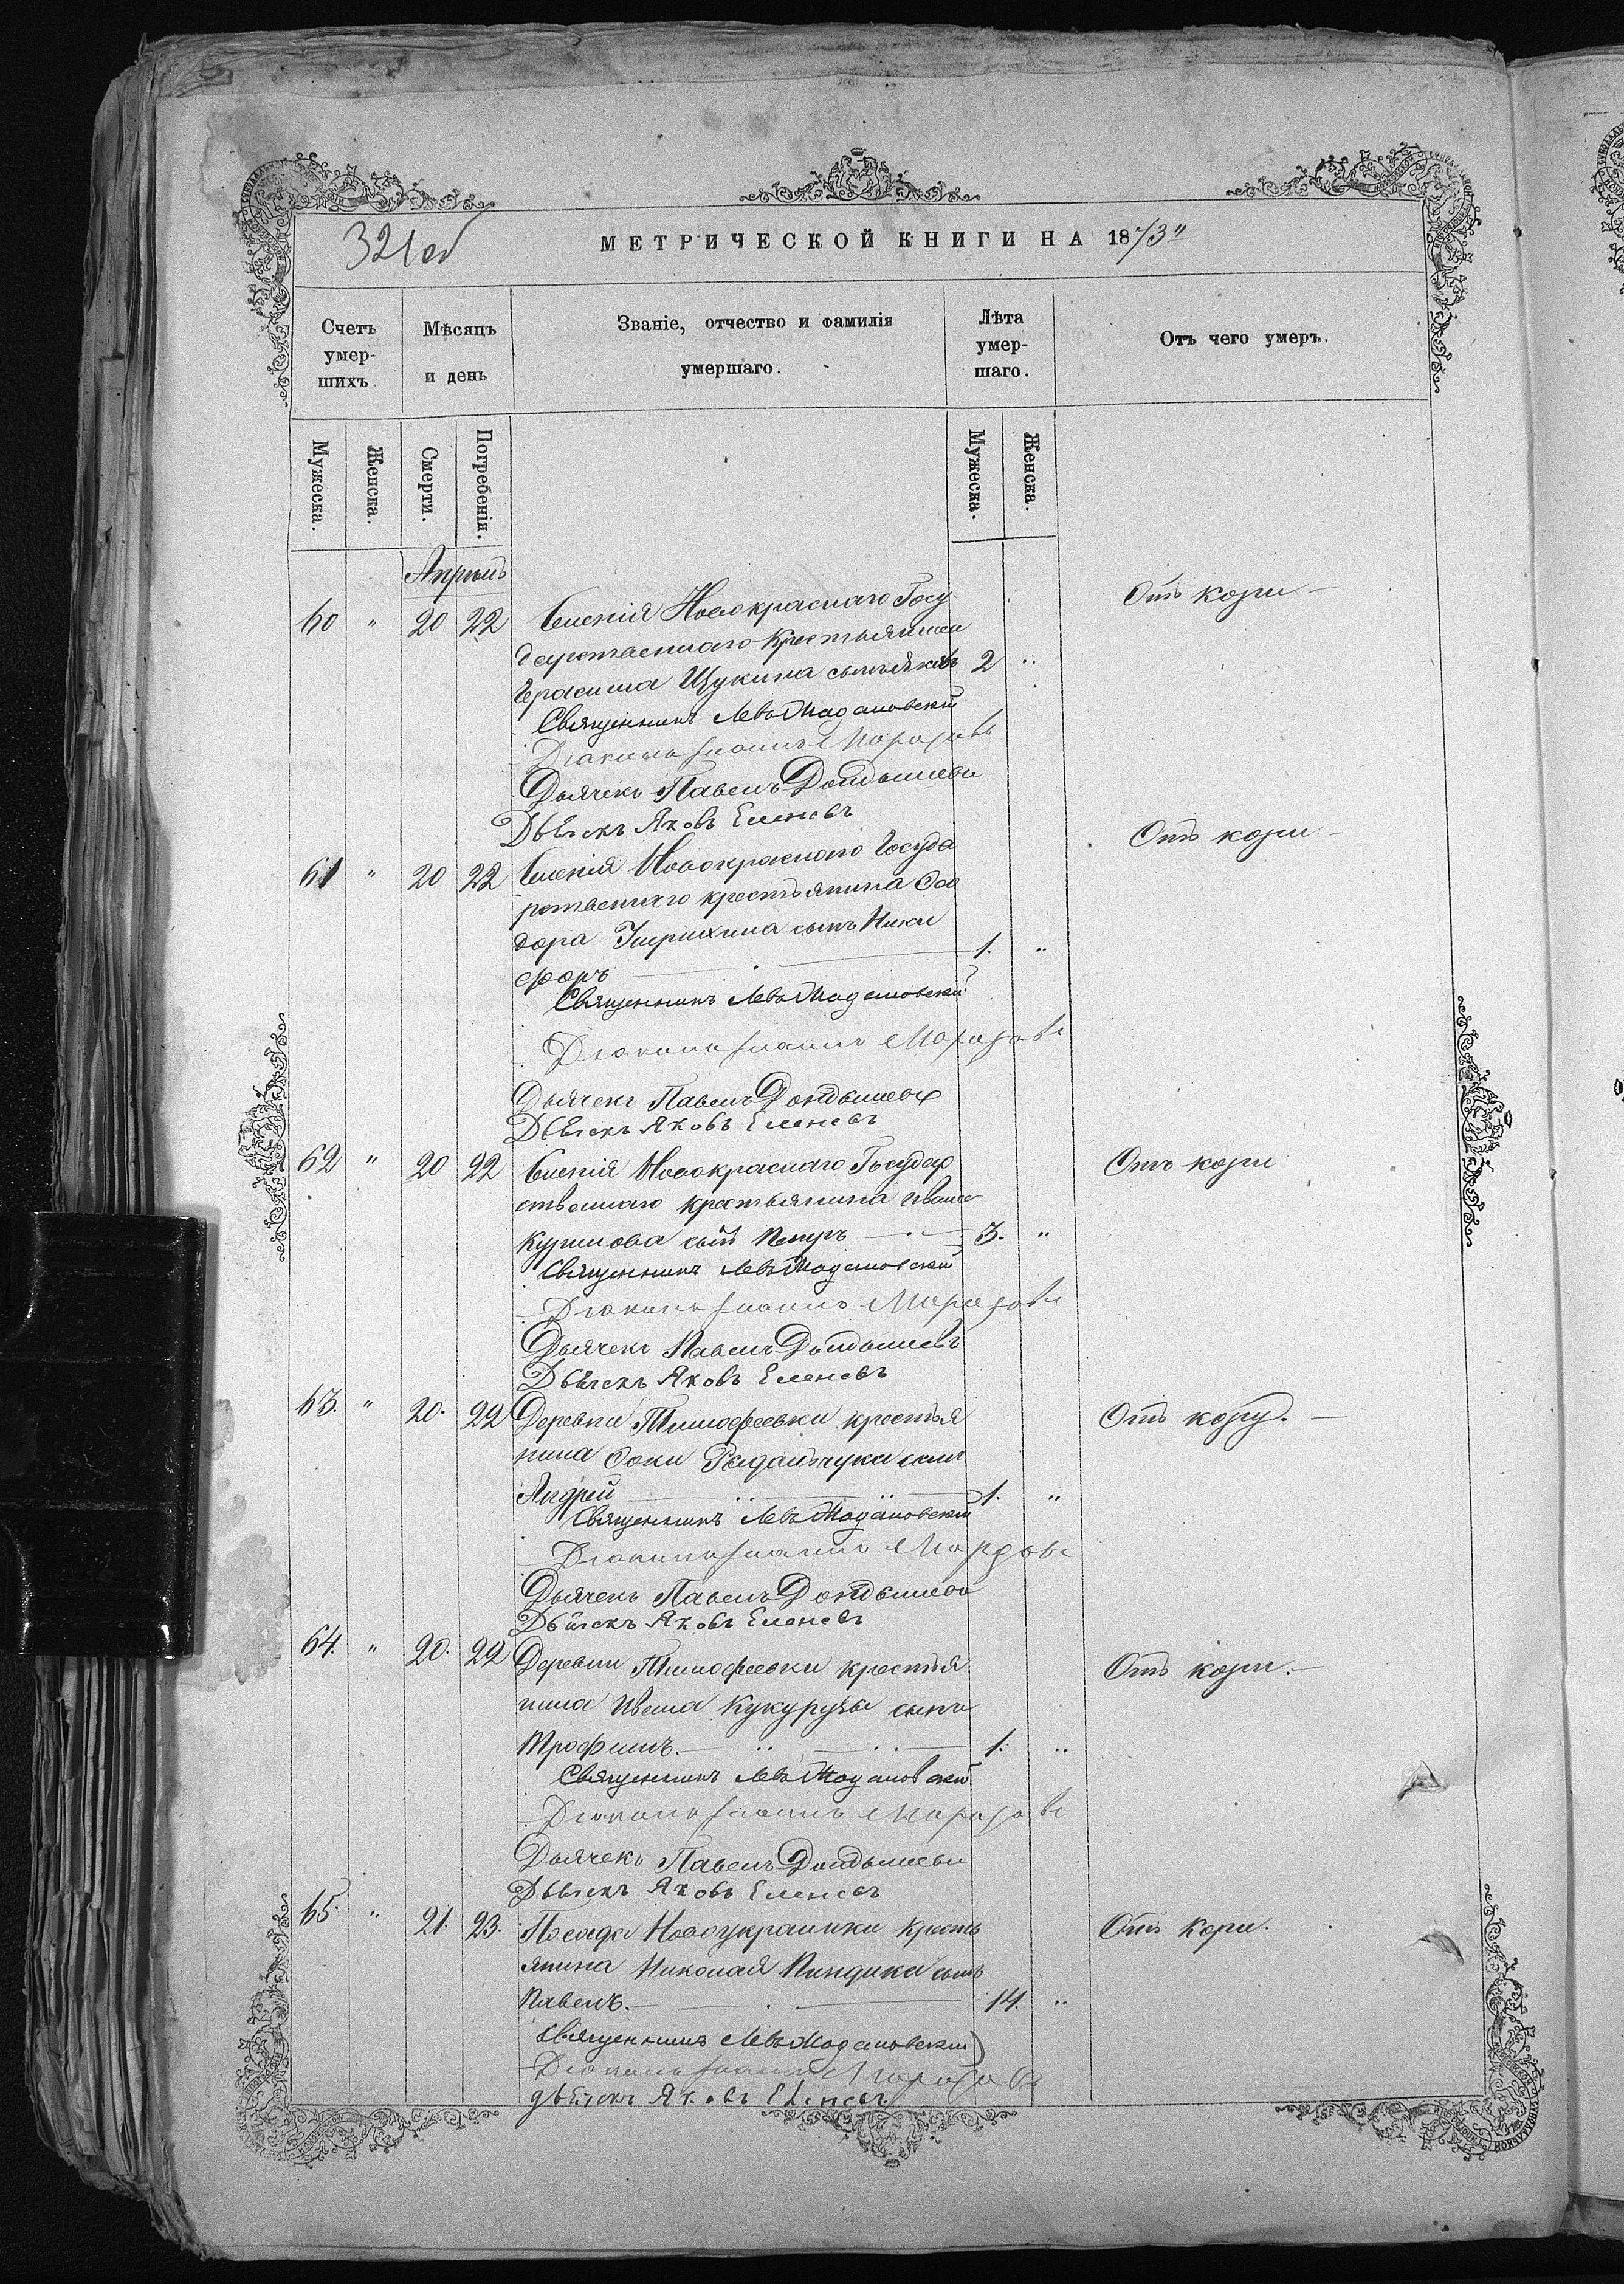 321 об
МЕТРИЧЕСКОЙ КНИГИ НА 1873"
Счетъ умер-шихъ.
Мѣсяцъ и день
Званіе, отчество и фамилія умершаго.
Лѣта умер-шаго.
Отъ чего умеръ.
Мужеска.
Женска.
Смерти.
Погребенія.
Мужеска.
Женска.
Апрѣль
60 " 20 22 Селенія Новокраснаго Госу Отъ кори
дарственнаго крестьянина
Герасима Щукина сынъ Яковъ 2 "
Священникъ Левъ Мадановскій
Діаконъ Іоаннъ Морозовъ
Дьячекъ Павелъ
Дьячекъ Яковъ Еленевъ
61 " 20 22 Селенія Новокраснаго Госуда Отъ кори
рственнаго крестьянина Ѳео
дора сынъ Ники
форъ 1. "
Священникъ Левъ Мадановскій
Діаконъ Іоаннъ Морозовъ
Дьячекъ Павелъ
Дьячекъ Яковъ Еленевъ
62 " 20 22 Селенія Новокраснаго Государ Отъ кори
ственнаго крестьянина Ивана
сынъ Петръ 3. "
Священникъ Левъ Мадановскій
Діаконъ Іоаннъ Морозовъ
Дьячекъ Павелъ
Дьячекъ Яковъ Еленевъ
63. " 20. 22 Деревни Тимофеевки крестья Отъ кору.
нина сынъ
Андрей 1. "
Священникъ Левъ Мадановскій
Діаконъ Іоаннъ Морозовъ
Дьячекъ Павелъ
Дьячекъ Яковъ Еленевъ
64. " 20. 22 Деревни Тимофеевки крестья Отъ кори.
нина Ивана Кукурузы сынъ
Трофимъ. 1. "
Священникъ Левъ Мадановскій
Діаконъ Іоаннъ Морозовъ
Дьячекъ Павелъ
Дьячекъ Яковъ Еленевъ
65. " 21. 23. Посада Новоукраинки кресть Отъ кори.
янина Николая Пиндика сынъ
Павелъ. 14. "
Священникъ Левъ Мадановскій
Діаконъ Іоаннъ Морозовъ
Дьячекъ Яковъ Еленевъ